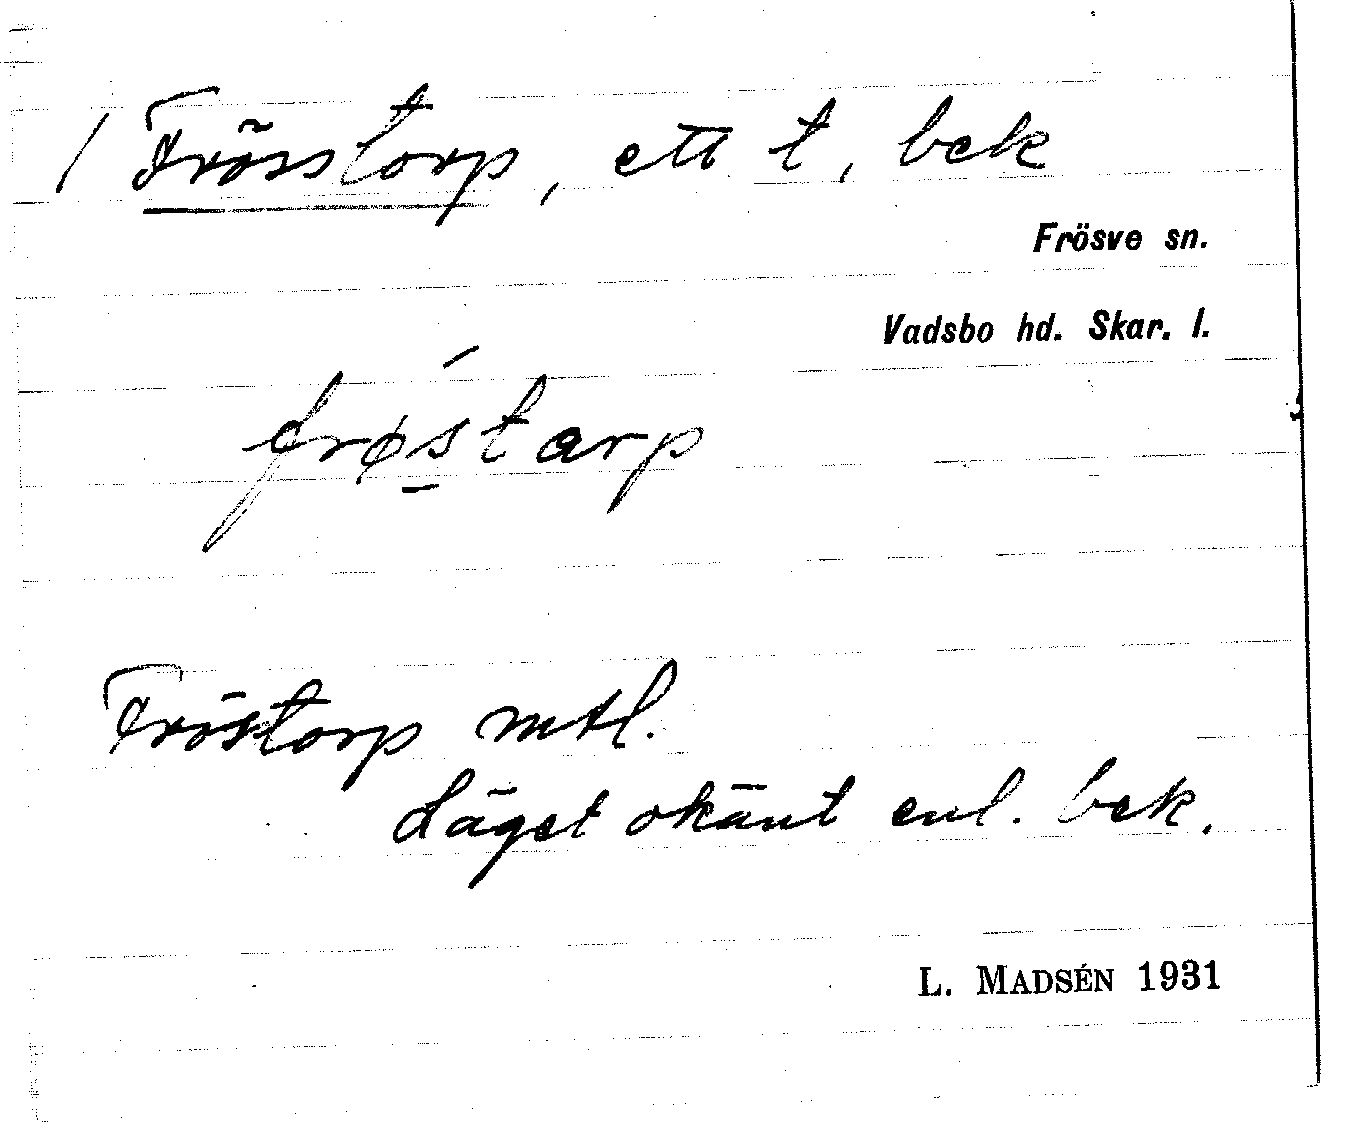 / Frösstorp, ett t, bek
Frösve sn.
Vadsbo hd. Skar. l.
frøstarp
Fröstorp mtl.
Läget okänt enl. bek.
L. MADSÉN 1931